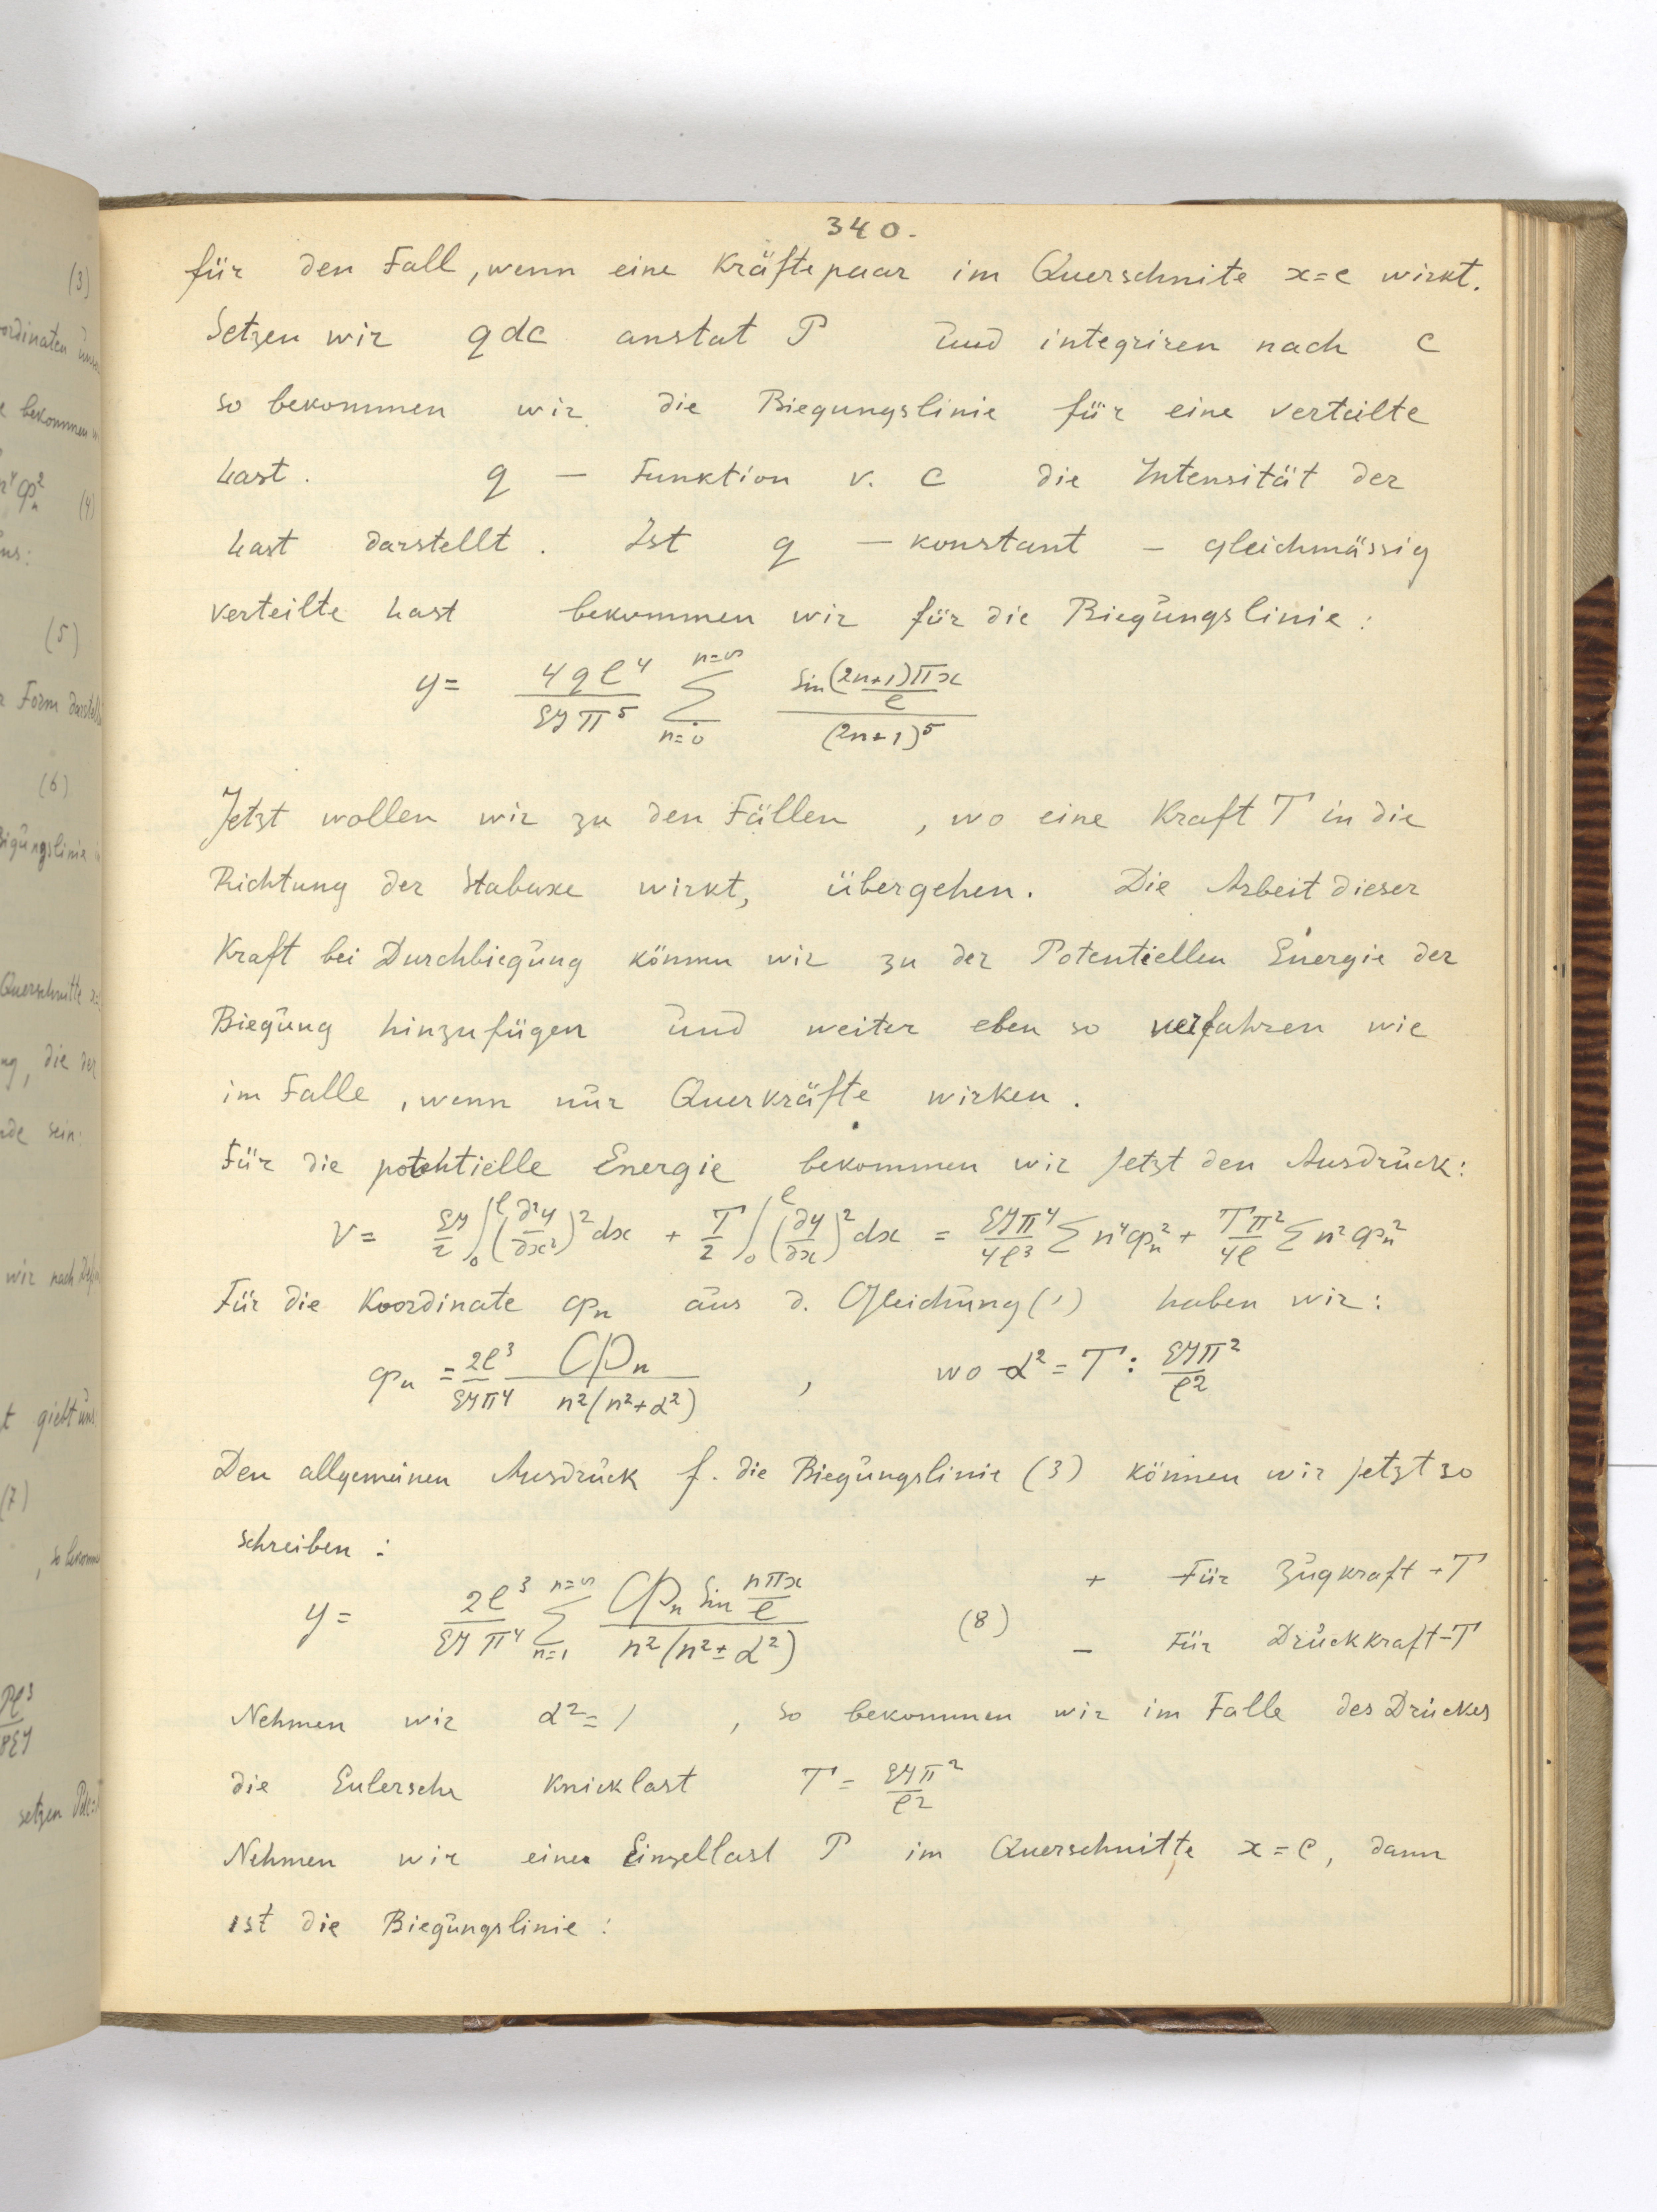 340.
für den Fall, wenn eine Kräftepaar im Querschnite x=c wirkt.
Setzen wir qdc anstat P und integriren nach c
so bekommen wir die Biegungslinie für eine verteilte
Last. q — Funktion v. c die Intensität der
Last darstellt. Ist q — konstant — gleichmässig
verteilte Last bekommen wir für die Biegungslinie:
y = \frac{4ql^4}{EJπ^5} \sum_{n=0}^{n=∞} \frac{sin\frac{(2n+1)πx}{l}}{(2n+1)^5}
Jetzt wollen wir zu den Fällen, wo eine Kraft T in die
Richtung der Stabaxe wirkt, übergehen. Die Arbeit dieser
Kraft bei Durchbiegung können wir zu der Potentiellen Energie der
Biegung hinzufügen und weiter eben so verfahren wie
im Falle, wenn nur Querkräfte wirken.
Für die potentielle Energie bekommen wir jetzt den Ausdruck:
V = \frac{EJ}{2} ∫_0^l (\frac{∂^2y}{∂x^2})^2 dx + \frac{T}{2} ∫_0^l (\frac{∂y}{∂x})^2 dx = \frac{EJπ^4}{4l^3} Σ n^4φ_n^2 + \frac{Tπ^2}{4l} Σ n^2φ_n^2
Für die Koordinate φ_n aus d. Gleichung (1) haben wir:
φ_n = \frac{2l^3}{EJπ^4} \frac{Φ_n}{n^2(n^2+α^2)}, wo α^2 = T : \frac{EJπ^2}{l^2}
Den allgemeinen Ausdruck f. die Biegungslinie (3) können wir jetzt so
schreiben:
y = \frac{2l^3}{EJπ^4} \sum_{n=1}^{n=∞} \frac{Φ_n sin\frac{nπx}{l}}{n^2(n^2±α^2)} (8)
+ Für Zugkraft -T
– Für Druckkraft -T
Nehmen wir α^2 = 1, so bekommen wir im Falle des Druckes
die Eulersche Knicklast T = \frac{EJπ^2}{l^2}
Nehmen wir eine Einzellast P im Querschnitte x=c, dann
ist die Biegungslinie: